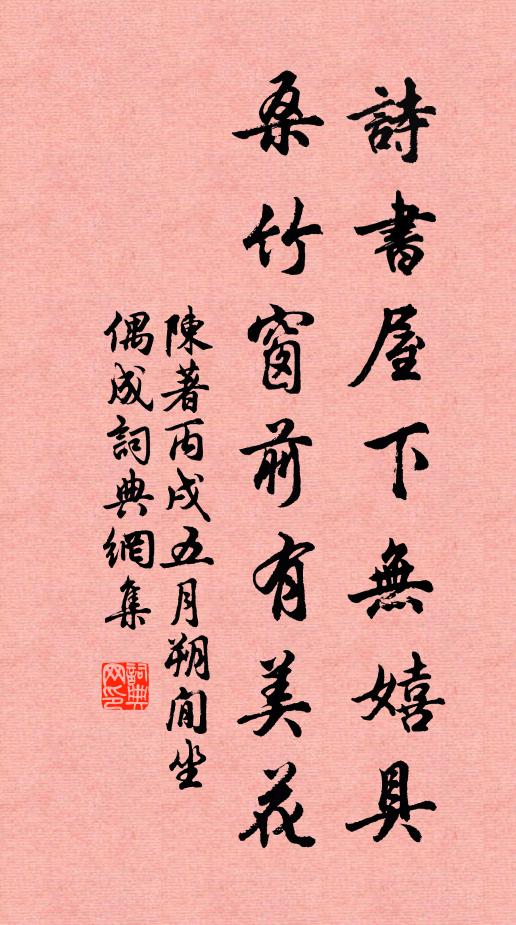 詩書屋下無嬉具
桑竹窗前有美花
陳著丙戌五月朔閒坐
偶成詞典網集
詞典网印